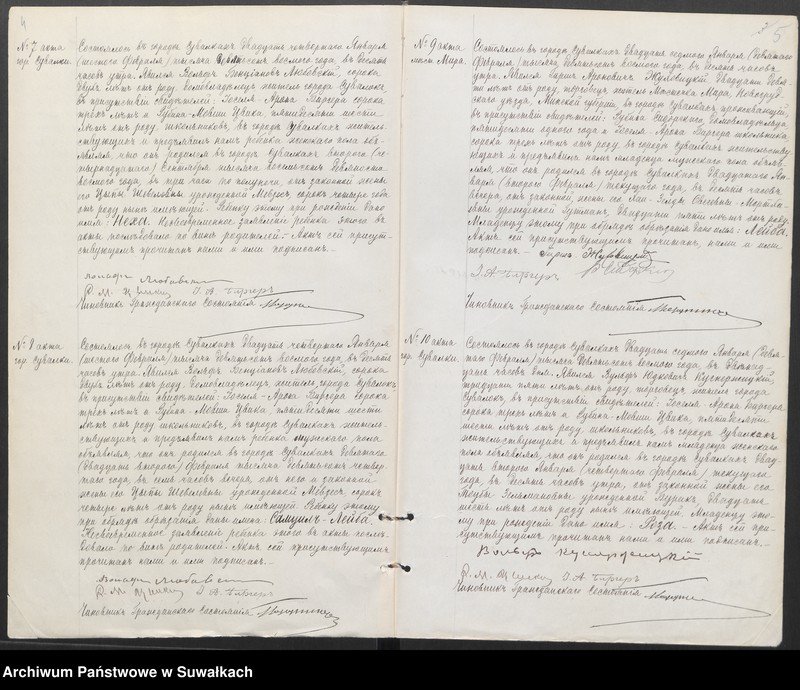 4
№ 7 акта
гор. Сувалки.
Состоялось въ городѣ Сувалкахъ двадцать четвертаго Января
(шестого Февраля) тысяча девятьсотъ восьмого года, въ десять
часовъ утра. Явился Вольфъ Любовскій, сорока
двухъ лѣтъ отъ роду, домовладѣлецъ, житель города Сувалокъ,
въ присутствіи свидѣтелей: Іоселя-Арона Биргера сорока
трехъ лѣтъ и Рувина-Мовши Цвика, пятидесяти шести
лѣтъ отъ роду школьниковъ, въ городѣ Сувалкахъ житель-
ствующихъ и предъявилъ намъ ребенка женскаго пола объ-
являя, что онъ родился въ городѣ Сувалкахъ второго (че-
тырнадцатаго) Сентября тысяча восемьсотъ девяносто
восьмого года, въ три часа по полуночи, отъ законной жены
его Ципы урожденной сорокъ четыре года
отъ роду нынѣ имѣющей. Ребенку этому при рожденіи дано
имя: Неха. Несвоевременное заявленіе ребенка этого въ
акты послѣдовало по винѣ родителей. Актъ сей присут-
ствующимъ прочитанъ нами и ими подписанъ.
Чиновникъ Гражданскаго Состоянія
№ 8 акта
гор. Сувалки.
Состоялось въ городѣ Сувалкахъ двадцать четвертаго Января
(шестого Февраля) тысяча девятьсотъ восьмого года, въ десять
часовъ утра. Явился Вольфъ Любовскій, сорока
двухъ лѣтъ отъ роду, домовладѣлецъ, житель города Сувалокъ
въ присутствіи свидѣтелей: Іоселя-Арона Биргера сорока
трехъ лѣтъ и Рувина-Мовши Цвика, пятидесяти шести
лѣтъ отъ роду школьниковъ, въ городѣ Сувалкахъ житель-
ствующихъ и предъявилъ намъ ребенка мужскаго пола
объявляя, что онъ родился въ городѣ Сувалкахъ девятаго
(двадцать второго) Февраля тысяча девятьсотъ четвер-
таго года, въ семь часовъ вечера, отъ него и законной
жены его Ципы урожденной сорокъ
четыре года отъ роду нынѣ имѣющей. Ребенку этому
при обрядѣ обрѣзанія дано имя: Самуилъ-Лейба.
Несвоевременное заявленіе ребенка этого въ акты послѣ-
довало по винѣ родителей. Актъ сей присутствующимъ
прочитанъ нами и ими подписанъ.
Чиновникъ Гражданскаго Состоянія
5
№ 9 акта
мѣст. Мира.
Состоялось въ городѣ Сувалкахъ двадцать седьмого Января (девятаго
Февраля) тысяча девятьсотъ восьмого года, въ десять часовъ
утра. Явился Гиршъ Ароновичъ Жуховицкій двадцати девя-
ти лѣтъ отъ роду, торговецъ, житель мѣстечка Мира, Новогруд-
скаго уѣзда, Минской губерніи, въ городѣ Сувалкахъ проживающій,
въ присутствіи свидѣтелей: домовладѣльца,
пятидесяти одного года и Іоселя-Арона Биргера школьника,
сорока трехъ лѣтъ отъ роду, въ городѣ Сувалкахъ жительству-
ющихъ и предъявилъ намъ младенца мужскаго пола объяв-
ляя, что онъ родился въ городѣ Сувалкахъ двадцатаго Ян-
варя (второго Февраля) текущаго года, въ десять часовъ
вечера, отъ законной жены его
урожденной Гутманъ, двадцати пяти лѣтъ отъ роду.
Младенцу этому при обрядѣ обрѣзанія дано имя: Лейба.
Актъ сей присутствующимъ прочитанъ, нами и ими
подписанъ.
Чиновникъ Гражданскаго Состоянія
№ 10 акта
гор. Сувалки.
Состоялось въ городѣ Сувалкахъ двадцать седьмого Января (девя-
таго Февраля) тысяча девятьсотъ восьмого года, въ двѣнад-
цать часовъ дня. Явился Вульфъ
тридцати пяти лѣтъ отъ роду, торговецъ, житель города
Сувалокъ, въ присутствіи свидѣтелей: Іоселя-Арона Биргера
сорока трехъ лѣтъ и Рувина-Мовши Цвика, пятидесяти
шести лѣтъ отъ роду, школьниковъ, въ городѣ Сувалкахъ
жительствующихъ и предъявилъ намъ младенца женскаго
пола объявляя, что онъ родился въ городѣ Сувалкахъ двад-
цать второго Января (четвертаго Февраля) текущаго
года, въ десять часовъ утра, отъ законной жены его
урожденной двадцать
шесть лѣтъ отъ роду нынѣ имѣющей. Младенцу это-
му при рожденіи дано имя: Роза. Актъ сей при-
сутствующимъ прочитанъ нами и ими подписанъ.
Чиновникъ Гражданскаго Состоянія
Archiwum Państwowe w Suwałkach